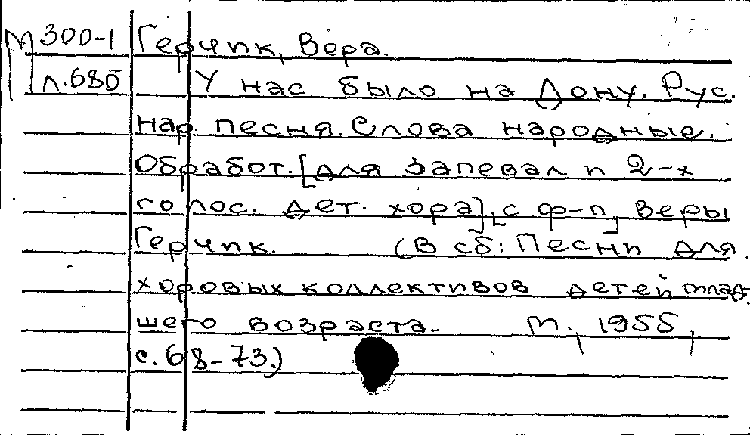 М 300-1 Герчик, Вера.
Л.680 У нас было на Дону. Рус.
нар. песня. Слова народные.
Обработ. [для запевал и 2-х
голос. дет. хора], с ф-п, Веры
Герчик. (В сб: Песни для
хоровых коллективов детей млад-
шего возраста. М., 1955,
с. 68-73.)